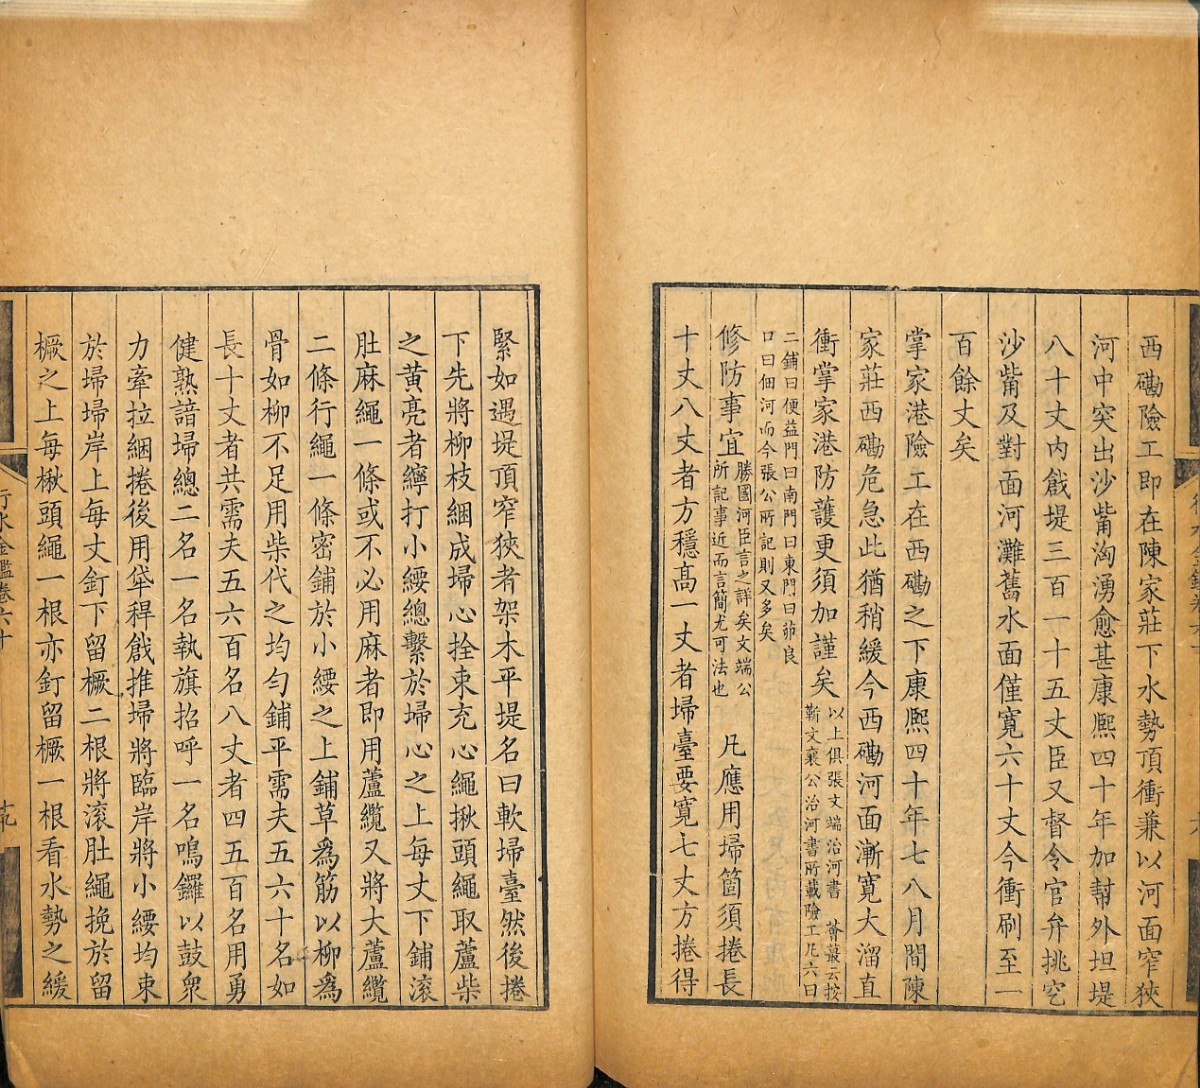 西磡險工即在陳家莊下水勢頂衝兼以河面窄狹
河中突出沙觜洶湧愈甚康熙四十年加幫外坦堤
八十丈內戧堤三百一十五丈臣又督令官弁挑空
沙觜及對面河灘舊水面僅寬六十丈今衝刷至一
百餘丈矣
掌家港險工在西磡之下康熙四十年七八月間陳
家莊西磡危急此猶稍緩今西磡河面漸寬大溜直
衝掌家港防護更須加謹矣
以上俱張文端治河書 薈蕞云按
靳文襄公治河書所載險工凡六曰
二鋪曰便益門曰南門曰東門曰茆良
口曰佃河而今張公所記則又多矣
修防事宜
勝國河臣言之詳矣文端公
所記事近而言簡尤可法也
凡應用埽箇須捲長
十丈八丈者方穩高一丈者埽臺要寬七丈方捲得
緊如遇堤頂窄狹者架木平堤名曰軟埽臺然後捲
下先將柳枝綑成埽心拴束充心繩揪頭繩取蘆柴
之黃亮者纏打小䌁總繫於埽心之上每丈下鋪滾
肚麻繩一條或不必用麻者即用蘆纜又將大蘆纜
二條行繩一條密鋪於小䌁之上鋪草為筋以柳為
骨如柳不足用柴代之均勻鋪平需夫五六十名如
長十丈者共需夫五六百名八丈者四五百名用勇
健熟諳埽總二名一名執旗招呼一名鳴鑼以鼓衆
力牽拉綑捲後用牮稈戧推埽將臨岸將小䌁均束
於埽埽岸上每丈釘下留橛二根將滾肚繩挽於留
橛之上每楸頭繩一根亦釘留橛一根看水勢之緩
行水金鑑卷六十